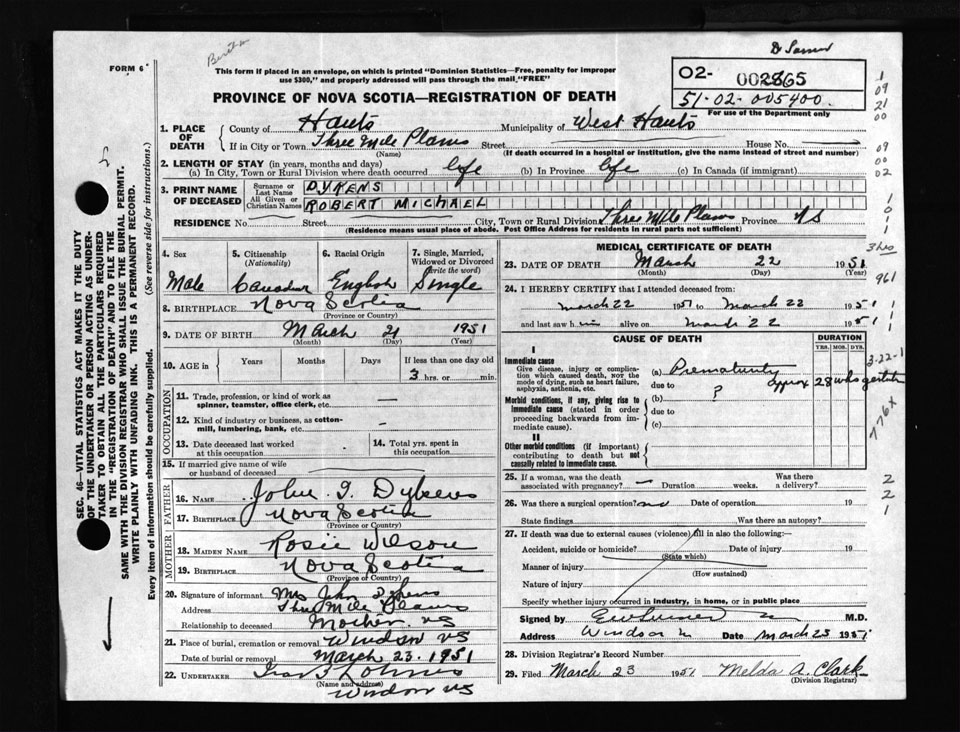 FORM 6
This form if placed in an envelope, on which is printed "Dominion Statistics—Free, penalty for improper
use $300," and properly addressed will pass through the mail "FREE"
PROVINCE OF NOVA SCOTIA—REGISTRATION OF DEATH
O2-
002865
51-02-005400
For use of the Department only
1. PLACE OF DEATH
County of Hants Municipality of West Hants
If in City or Town Three Mile Plains Street House No.
(Name) (If death occurred in a hospital or institution, give the name instead of street and number)
2. LENGTH OF STAY (in years, months and days)
(a) In City, Town or Rural Division where death occurred life (b) In Province life (c) In Canada (if immigrant)
3. PRINT NAME OF DECEASED
Surname or Last Name DYKENS
All Given or Christian Names ROBERT MICHAEL
RESIDENCE No. Street City, Town or Rural Division Three Mile Plains Province NS
(Residence means usual place of abode. Post Office Address for residents in rural parts not sufficient)
4. Sex
Male
5. Citizenship (Nationality)
Canadian
6. Racial Origin
English
7. Single, Married, Widowed or Divorced (write the word)
Single
8. BIRTHPLACE Nova Scotia
(Province or Country)
9. DATE OF BIRTH March 21 1951
(Month) (Day) (Year)
10. AGE in Years Months Days If less than one day old
3 hrs. or min.
OCCUPATION
11. Trade, profession, or kind of work as
spinner, teamster, office clerk, etc. —
12. Kind of industry or business, as cotton-
mill, lumbering, bank, etc. —
13. Date deceased last worked
at this occupation
14. Total yrs. spent in
this occupation
15. If married give name of wife
or husband of deceased
FATHER
16. NAME John I. Dykens
17. BIRTHPLACE Nova Scotia
(Province or Country)
MOTHER
18. MAIDEN NAME Rosie Wilson
19. BIRTHPLACE Nova Scotia
(Province or Country)
20. Signature of informant Mrs John Dykens
Address Three Mile Plains
Relationship to deceased Mother NS
21. Place of burial, cremation or removal Windsor NS
Date of burial or removal March 23. 1951
22. UNDERTAKER
(Name and address)
Windsor NS
MEDICAL CERTIFICATE OF DEATH
23. DATE OF DEATH March 22 1951
(Month) (Day) (Year)
24. I HEREBY CERTIFY that I attended deceased from:
March 22 1951 to March 22 1951
and last saw him alive on March 22 1951
CAUSE OF DEATH
DURATION
YRS. MOS. DYS.
I
Immediate cause
Give disease, injury or complica-
tion which caused death, NOT the
mode of dying, such as heart failure,
asphyxia, asthenia, etc.
(a) Prematurity
approx 28 wks gestation
due to
Morbid conditions, if any, giving rise to
immediate cause (stated in order
proceeding backwards from im-
mediate cause).
(b) ?
due to
(c)
II
Other morbid conditions (if important)
contributing to death but not
causally related to immediate cause.
25. If a woman, was the death
associated with pregnancy? — Duration weeks. Was there
a delivery?
26. Was there a surgical operation? no Date of operation 19
State findings Was there an autopsy?
27. If death was due to external causes (violence) fill in also the following:
Accident, suicide or homicide? Date of injury 19
(State which)
Manner of injury
(How sustained)
Nature of injury
Specify whether injury occurred in industry, in home, or in public place
Signed by M.D.
Address Windsor Date March 23 1951
28. Division Registrar's Record Number
29. Filed March 23 1951 Melda A. Clark
(Division Registrar)
SEC. 46—VITAL STATISTICS ACT MAKES IT THE DUTY
OF THE UNDERTAKER OR PERSON ACTING AS UNDER-
TAKER TO OBTAIN ALL THE PARTICULARS REQUIRED
IN THE "REGISTRATION OF DEATH" AND TO FILE THE
SAME WITH THE DIVISION REGISTRAR WHO SHALL ISSUE THE BURIAL PERMIT.
WRITE PLAINLY WITH UNFADING INK. THIS IS A PERMANENT RECORD.
Every item of information should be carefully supplied. (See reverse side for instructions.)
1
09
21
00
09
00
02
1
0
1
1
3 hrs
961
1
1
1
3-22-1
776X
2
2
1